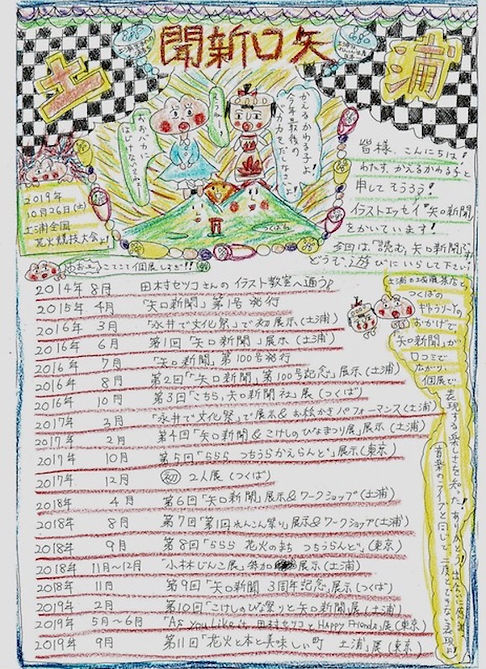 矢口新聞
土
浦
かえるかわる子よ!
皆様、こんにちは!
わたす、かえるかわる子と
申してそうろう!
イラストエッセイ『矢口新聞』
をかいています!
今回は、『読む、矢口新聞』
どうぞ、遊びにいらして下さい!
2019年
10月26日(土)
土浦全国
花火競技大会よ!
つくばね
2014年 8月 田村セツコさんのイラスト教室へ通う
2015年 4月 『矢口新聞』第1号 発行
2016年 3月 「永井で文化祭」で初展示(土浦)
2016年 6月 第1回『矢口新聞』展示(土浦)
2016年 7月 『矢口新聞』第100号発行
2016年 8月 第2回『矢口新聞、第100号記念』展示(土浦)
2016年 10月 第3回『こちら、矢口新聞社』展(つくば)
2017年 3月 「永井で文化祭」で展示&お絵かきパフォーマンス(土浦)
2017年 2月 第4回『矢口新聞&こけしのひなまつり展』(土浦)
2017年 10月 第5回『ららら つちうらかえらんど』展示(東京)
2017年 12月 初 2人展(つくば)
2018年 4月 第6回『矢口新聞』展示&ワークショップ(土浦)
2018年 8月 第7回『第1回れんこん祭り』展示&ワークショップ(土浦)
2018年 9月 第8回『ららら 花火のまち つちうらんど』(東京)
2018年 11月~12月 『小林じんこ展』参加展示(土浦)
2018年 11月 第9回『矢口新聞 3周年記念』展示(つくば)
2019年 2月 第10回『こけしのひな祭りと矢口新聞展』(土浦)
2019年 5月~6月 『As you like it 田村セツコとHappy Friends』展(東京)
2019年 9月 第11回『花火と本と美味しい町 土浦』展(東京)
つくばの
ギャラリーの
おかげで
『矢口新聞』が
口コミで
広がり、
個展で
表現する楽しさを知った!